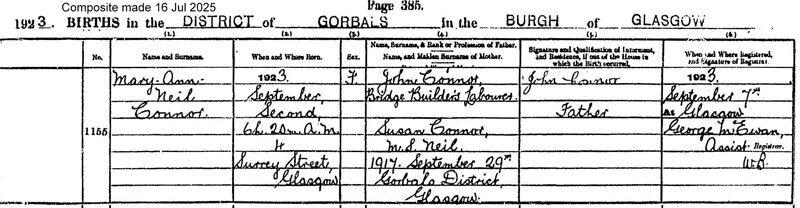 Composite made 16 Jul 2025
Page 385.
1923. BIRTHS in the DISTRICT of GORBALS in the BURGH of GLASGOW
(1.) (2.) (3.) (4.) (5.) (6.)
No. Name and Surname. When and Where Born. Sex. Name, Surname, & Rank or Profession of Father. Name, and Maiden Surname of Mother. Signature and Qualification of Informant, and Residence, if out of the House in which the Birth occurred. When and Where Registered, and Signature of Registrar.
1155
Mary-Ann
Neil
Connor.
1923.
September,
Second,
6h. 20m. A.M.
4
Surrey Street,
Glasgow
F.
John Connor,
Bridge Builder's Labourer.
Susan Connor,
m.S. Neil.
1917. September 29th
Gorbals District,
Glasgow.
John Connor
Father
1923.
September 7th
at Glasgow
George McEwan,
Assist. Registrar.